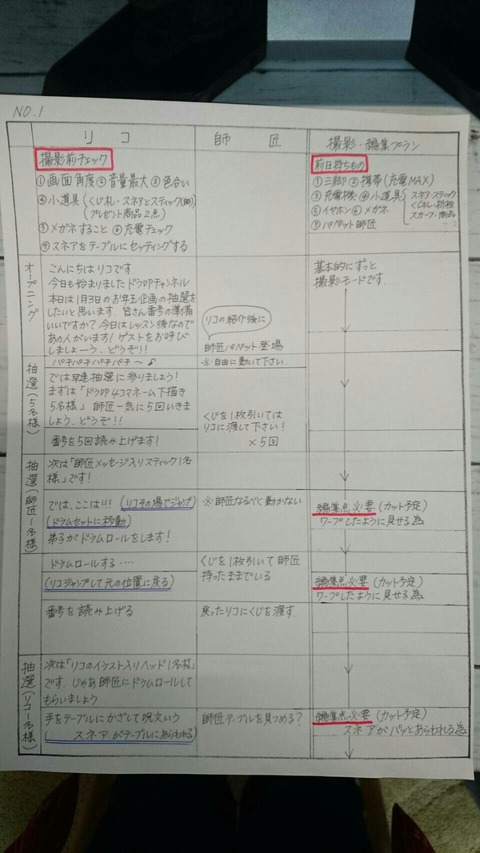 NO.1
リコ
師匠
撮影・編集プラン
撮影前チェック
①画面角度②音量最大③色合い
④小道具(くじ札・スネアとスティック(師)
プレゼント商品2点)
⑤メガネすること⑥充電チェック
⑦スネアをテーブルにセッティングする
前日持ちもの
①三脚②携帯(充電MAX)
③充電機④小道具
スネア・スティック
くじ札・折板
スカーフ・商品
⑤イヤホン⑥メガネ
⑦パペット師匠
オープニング
こんにちはリコです。
今日も始まりましたドラ叩チャンネル
本日は1月3日のお年玉企画の抽選をし
たいと思います。皆さん番号の準備
いいですか?今日はレッスン後なので
あの人がいます!ゲストをお呼び
しましょーう、どうぞ!!
パチパチパチパチ〜♪
リコの紹介後に
師匠パペット登場
※自由に動いて下さい。
基本的にずっと
撮影モードです。
抽選(5名様)
では早速抽選に参りましょう!
まずは「ドラ叩4コマネーム下描き
5名様」師匠一気に5回いきま
しょう、どうぞ!!
番号を5回読み上げます!
くじを1枚引いては
リコに渡して下さい!
×5回
抽選(師匠1名様)
次は「師匠メッセージ入りスティック1名
様」です!
では、ここは!!!(リコその場でジャンプ)
(ドラムセットに移動)
弟子がドラムロールをします!
※師匠なるべく動かない
編集点必要(カット予定)
ワープしたように見せる為
ドラムロールする・・・・
(リコジャンプして元の位置に戻る)
くじを1枚引いて師匠
持ったままでいる
編集点必要(カット予定)
ワープしたように見せる為
番号を読み上げる
戻ったリコにくじを渡す。
抽選(リコ1名様)
次は「リコのイラスト入りヘッド1名様」
です。じゃあ師匠にドラムロールして
もらいましょう
手をテーブルにかざして呪文いう
(スネアがテーブルにあらわれる)
師匠テーブルを見つめる?
編集点必要(カット予定)
スネアがパッとあらわれる為